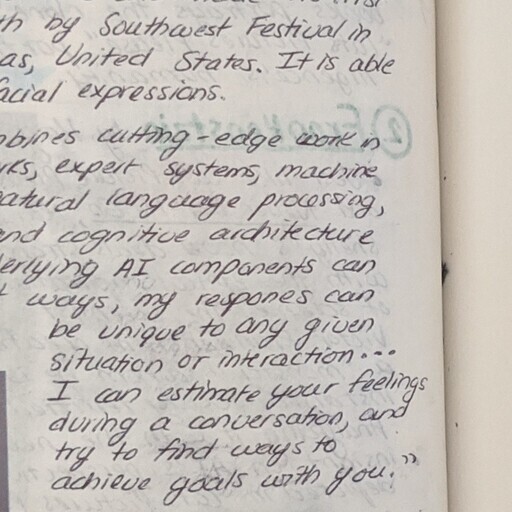 th by Southwest Festival in
as, United States. It is able
acial expressions.
mbines cutting-edge work in
rks, expert systems, machine
natural language processing,
and cognitive architecture
erlying AI components can
t ways, my respones can
be unique to any given
situation or interaction...
I can estimate your feelings
during a conversation, and
try to find ways to
achieve goals with you."